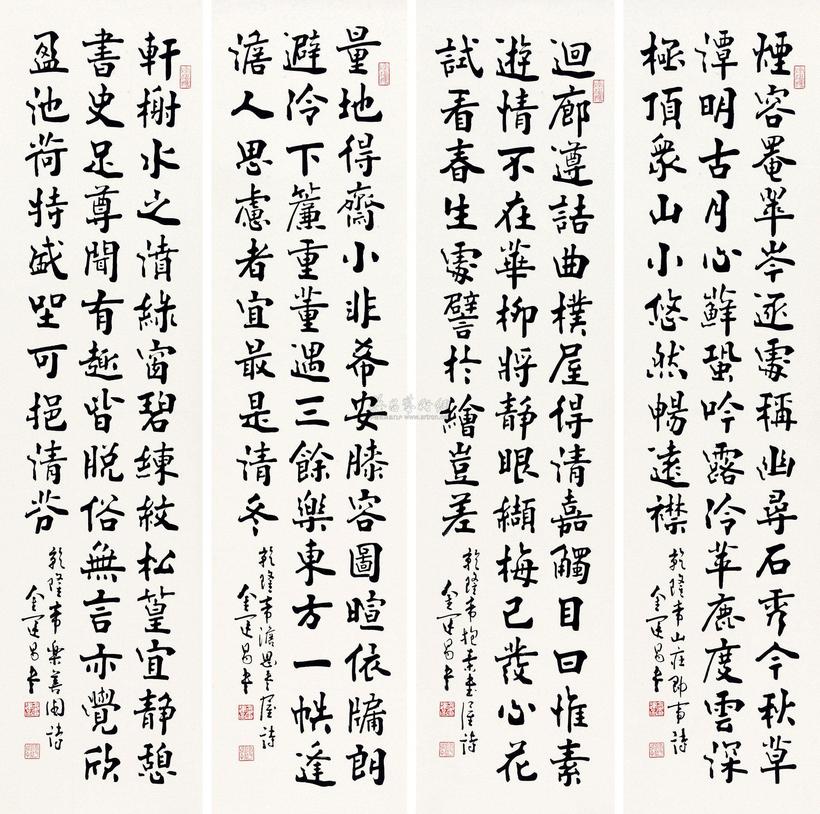 煙容罨翠岑逐處稱幽尋石秀今秋草
潭明古月心蘚蛩吟露冷苹鹿度雲深
極頂衆山小悠然暢遠襟
乾隆帝山莊即事詩
金運昌書
迴廊遵詰曲樸屋得清嘉觸目曰惟素
遊情不在華柳將靜眼纈梅已發心花
試看春生處譬於繪豈差
乾隆帝抱素書屋詩
金運昌書
量地得齋小非希安膝容圖暄依牖朗
避冷下簾重董遇三餘樂東方一帙逢
澹人思慮者宜最是清冬
乾隆帝澹思書屋詩
金運昌書
軒榭水之濆綠窗碧練紋松篁宜靜憩
書史足尊聞有趣皆脫俗無言亦覺欣
盈池荷特盛坐可挹清芬
乾隆帝樂善園詩
金運昌書